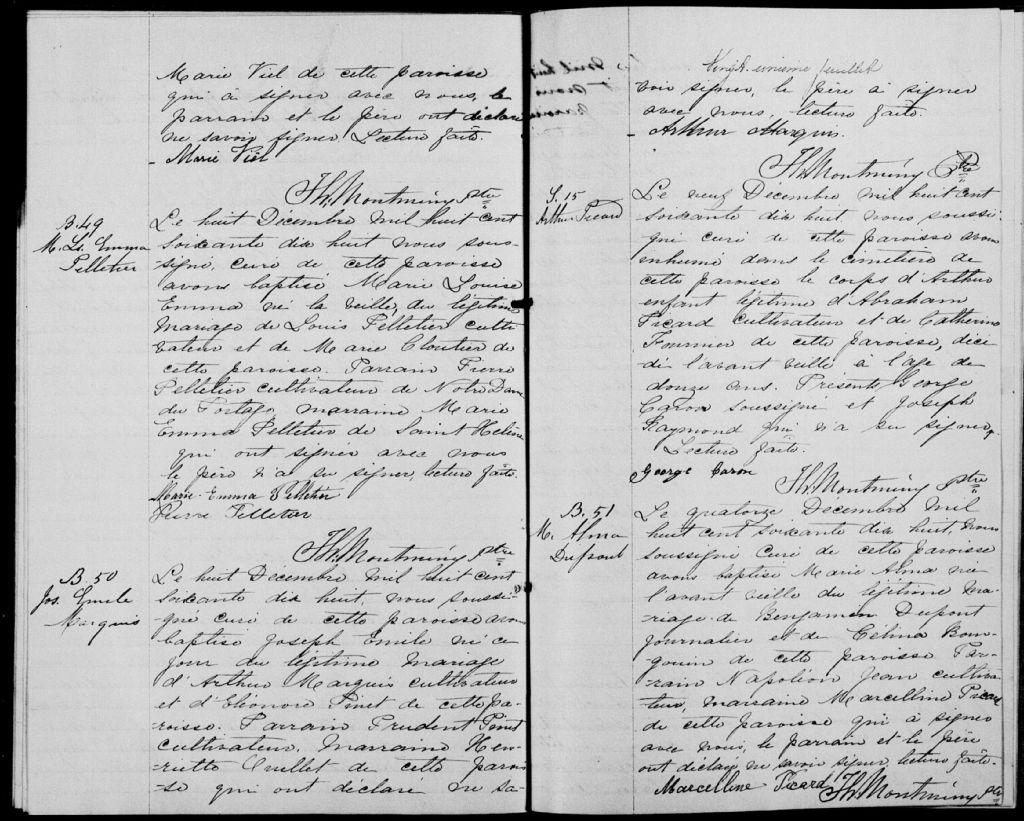 Marie Viel de cette paroisse
qui à signer avec nous, le
parrain et le père ont déclaré
ne savoir signer. Lecture faite.
Marie Viel
Th. Montminy Ptre
B. 49
M. Ls. Emma
Pelletier
Le huit Decembre mil huit cent
soixante dix huit nous sous-
signé, curé de cette paroisse
avons baptisé Marie Louise
Emma né la veille, du légitime
mariage de Louis Pelletier culti
vateur et de Marie Cloutier de
cette paroisse. Parrain Pierre
Pelletier cultivateur de Notre Dame
du Portage, marraine Marie
Emma Pelletier de Saint Helène
qui ont signer avec nous
le père n'a su signer, lecture faite.
Marie-Emma Pelletier
Pierre Pelletier
Th. Montminy Ptre
B. 50
Jos. Emile
Marquis
Le huit Décembre mil huit cent
soixante dix huit, nous soussi-
gné curé de cette paroisse avons
baptisé Joseph Emile né ce
jour du légitime mariage
d'Arthur Marquis cultivateur
et d'Eleonore Pinet de cette pa-
roisse. Parrain Prudent Pinet
cultivateur. Marraine Hen-
riette Ouellet de cette parois
-se qui ont declaré ne sa-
Vingt-unième feuillet
voir signer, le père à signer
avec nous, lecture faite.
Arthur Marquis.
Th. Montminy Ptre
S. 15
Arthur Picard
Le neuf Décembre mil huit cent
soixante dix huit nous soussi-
gné curé de cette paroisse avons
inhumé dans le cimetière de
cette paroisse le corps d'Arthur
enfant légitime d'Abraham
Picard cultivateur et de Catherine
Fournier de cette paroisse, décé
dé l'avant veille à l'age de
douze ans. Présents George
Caron soussigné et Joseph
Raymond qui n'a su signer,
Lecture faite.
George Caron
Th. Montminy Ptre
B. 51
M. Alma
Dupont
Le quatorze Décembre mil
huit cent soixante dix huit, nous
soussigné Curé de cette paroisse
avons baptisé Marie Alma née
l'avant veille du légitime ma-
riage de Benjamin Dupont
journalier et de Célina Bour-
gouin de cette paroisse Par-
rain Napoléon Jean cultiva-
teur, marraine Marcelline Picard
de cette paroisse qui à signer
avec nous, le parrain et le père
ont déclaré ne savoir signer, lecture faite.
Marcelline Picard Th. Montminy Ptre